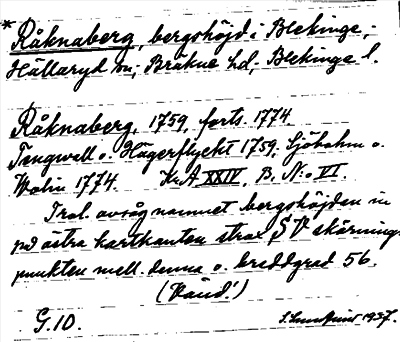 * Råknaberg, bergshöjd i Blekinge,
Hällaryd sn, Bräkne hd, Blekinge l.
Råknaberg, 1759, forts. 1774
Tengwall o. Hägerflycht 1759, Sjöbohm o.
Wolin 1774. Kr. A XXIV, B. N:o VI.
Trol. avsåg namnet bergshöjden in
på östra kartkanten strax S V skärnings-
punkten mell. denna o. breddgrad 56.
G. 10. 1937.